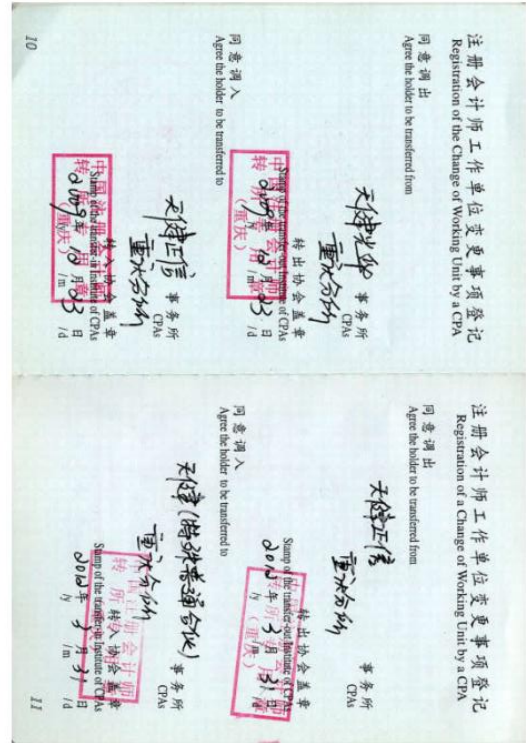 注册会计师工作单位变更事项登记
Registration of the Change of Working Unit by a CPA
同意调出
Agree the holder to be transferred from
天健光华
重庆分所
事务所
CPAs
转出协会盖章
Stamp of the transfer-out Institute of CPAs
中国注册会计师
转所专用章
(重庆)
2009年 12月 23日
/y /m /d
同意调入
Agree the holder to be transferred to
天健正信
重庆分所
事务所
CPAs
转入协会盖章
Stamp of the transfer-in Institute of CPAs
中国注册会计师
转所专用章
(重庆)
2009年 12月 23日
/y /m /d
10
注册会计师工作单位变更事项登记
Registration of a Change of Working Unit by a CPA
同意调出
Agree the holder to be transferred from
天健正信
重庆分所
事务所
CPAs
转出协会盖章
Stamp of the transfer-out Institute of CPAs
2012年 3月 31日
/y /m /d
(重庆)
同意调入
Agree the holder to be transferred to
天健(特殊普通合伙)
重庆分所
事务所
CPAs
转入协会盖章
Stamp of the transfer-in Institute of CPAs
2012年 3月 31日
/y /m /d
11